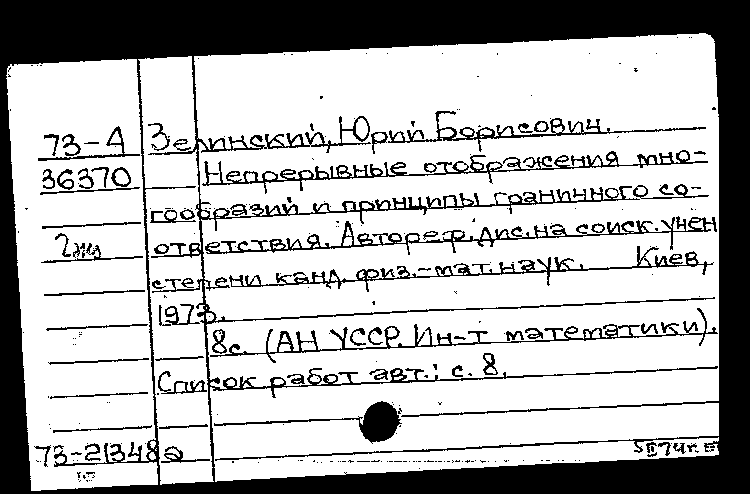 73-4 Зелинский, Юрий Борисович.
36370 Непрерывные отображения мно-
гообразий и принципы граничного со-
2 экз ответствия. Автореф. дис. на соиск. учен
степени канд. физ.-мат. наук. Киев,
1973.
8с. (АН УССР. Ин-т математики).
Список работ авт.: с. 8.
73-21348а